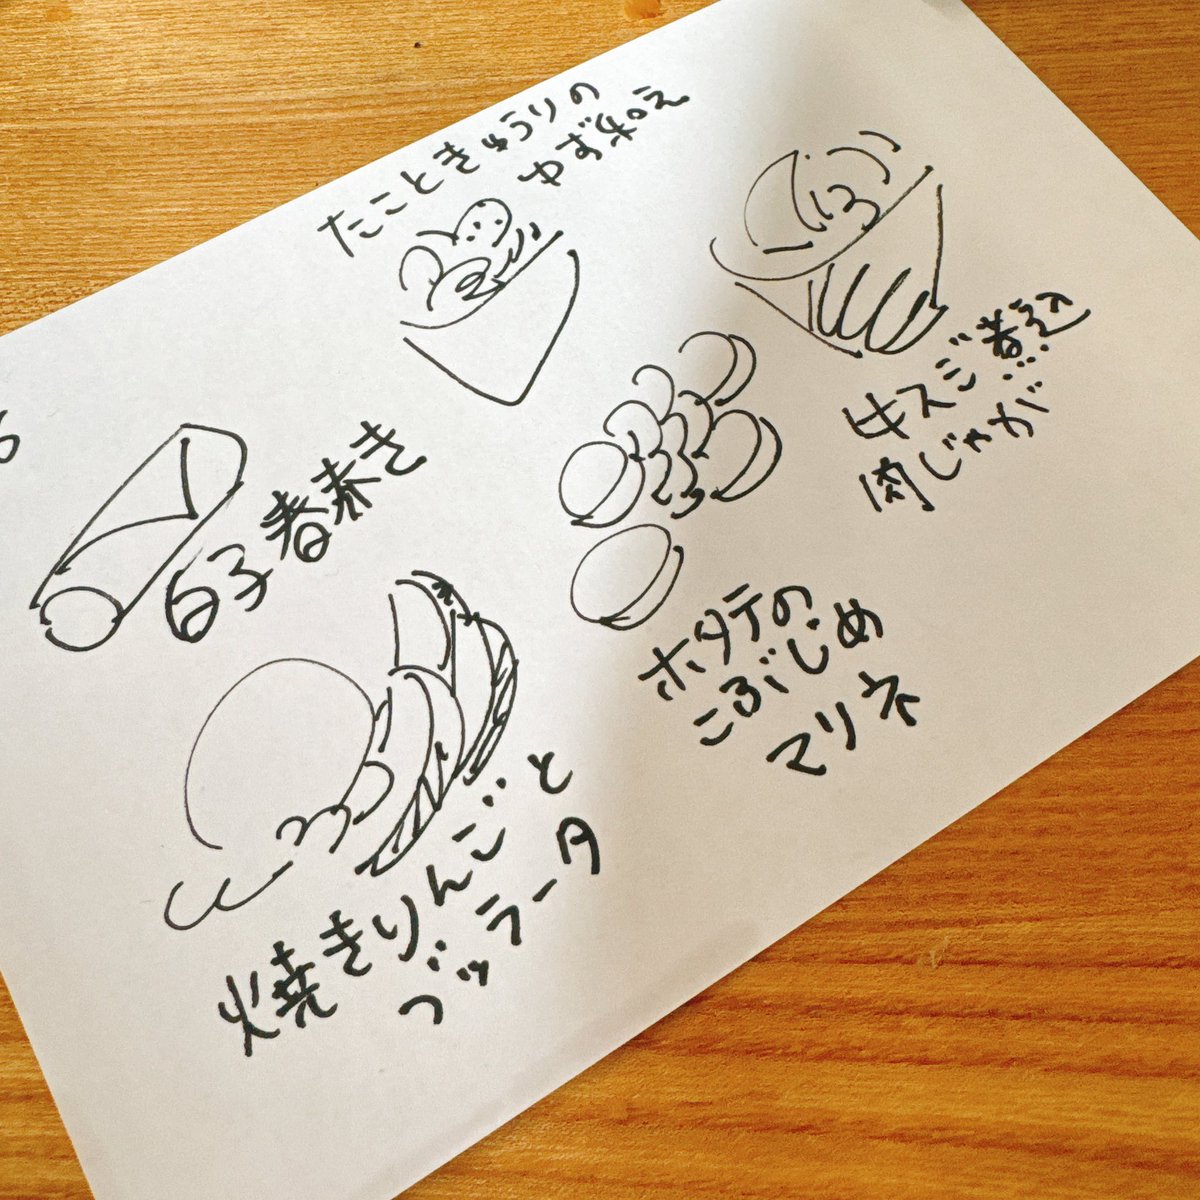 たこときゅうりの
ゆず和え
牛スジ煮込
肉じゃが
白子春巻き
ホタテの
こぶじめ
マリネ
焼きりんごと
ブッラータ